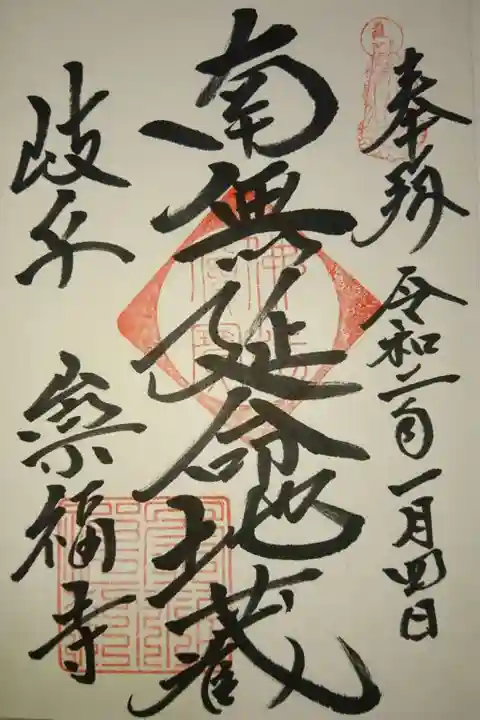 奉拝 令和二年一月四日
南無延命地蔵
岐阜 崇福寺